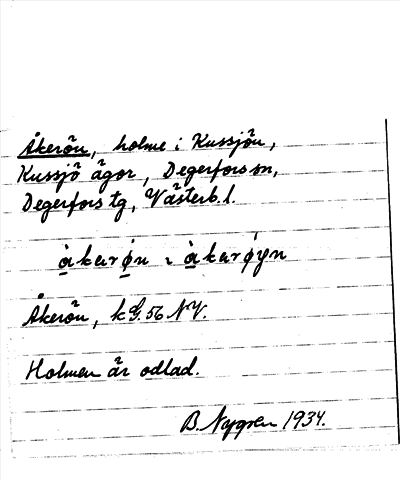 Åkerön, holme i Kussjön,
Kussjö ägor, Degerfors sn,
Degerfors tg, Västerb. l.
àkarǿn ɩ àkarǿyn
Åkerön, k G. 56 NV.
Holmen är odlad.
B. Nygren 1934.